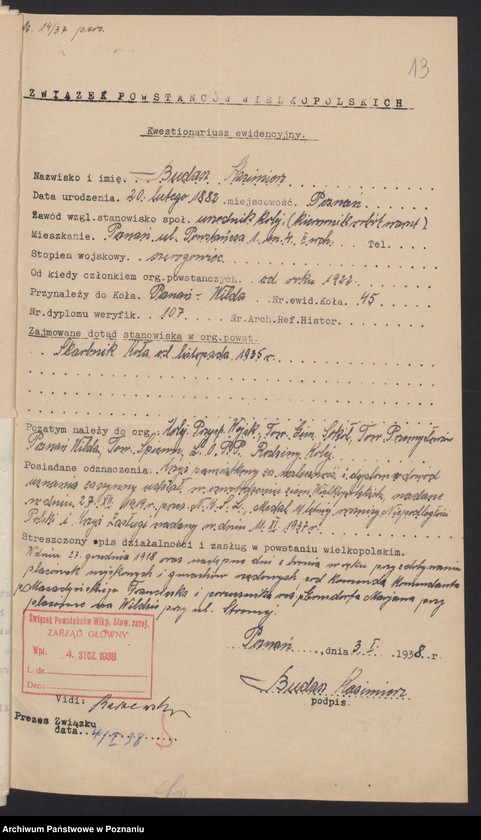 14/37 pers.
13
ZWIĄZEK POWSTAŃCÓW WIELKOPOLSKICH
Kwestionariusz ewidencyjny.
Nazwisko i imię. Budasz Kazimierz
Data urodzenia. 20. lutego 1882. miejscowość. Poznań
Zawód wzgl.stanowisko społ. urzędnik kolej. (kierownik robót
Mieszkanie. Poznań ul. Powstańcza 1. m. 4. Tel.
Stopień wojskowy. szeregowiec.
Od kiedy członkiem org.powstańczych. od roku 1922
Przynależy do Koła. Poznań - Wilda Nr.ewid.Koła. 45
Nr.dyplomu weryfik. 107 Nr.Arch.Ref.Histor.
Zajmowane dotąd stanowiska w org.powst.
Skarbnik Koła od listopada 1935 r.
Pozatym należy do org. Kolej. Przysp. Wojsk., Tow. Gimn. Sokół, Tow. Przemysłowe
Poznań Wilda, Tow. L.O.P.P. Rodziny Kolej.
Posiadane odznaczenia. Krzyż pamiątkowy za waleczność i dyplom w dowód
uznania za czynny udział w ziem Wielkopolskich, nadane
w dniu 27. XII. 1919 r. przez N.R.L., Medal Niepodległości
Polski i Krzyż Zasługi nadany w dniu 11. XI 1937 r.
Streszczony opis działalności i zasług w powstaniu wielkopolskim.
W dniu 27. grudnia 1918 oraz następne dni z bronią w ręku przy zdobywaniu
placówek wojskowych i gmachów rządowych pod komendą Komendanta
Franciszka i porucznika Marjana przy
placówce na Wildzie przy ul. Stromej
Związek Powstańców Wlkp. Stow. zarej.
ZARZĄD GŁÓWNY
Wpł. 4. STCZ. 1938
L. dz.
Dec:
Poznań, dnia 3. I. 1938 r.
Budasz Kazimierz
podpis
Vidi:
Prezes Związku
data. 4/I 38
Archiwum Państwowe w Poznaniu